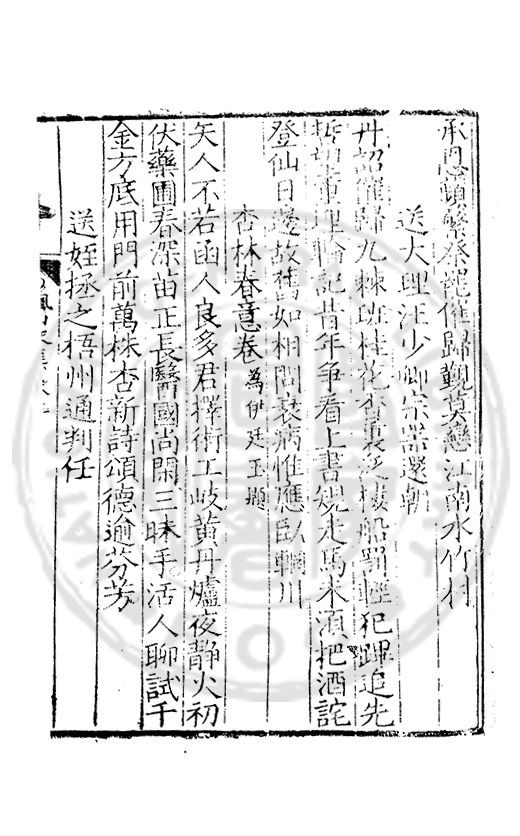 承恩頻繁發寵催歸覲莫戀江南水竹村
送大理汪少卿宗器還朝
丹詔催歸九棘班桂花香裏泛樓船罰輕犯蹕追先
哲望重埋輪記昔年爭看上書娩走馬未須把酒詫
登仙日邊故舊如相問衰病惟應臥輞川
杏林春意卷為伊廷玉題
矢人不若函人良多君擇術工岐黃丹爐夜靜火初
伏藥圃春深苗正長醫國尚閑三昧手活人聊試千
金方底用門前萬株杏新詩頌德逾芬芳
送姪拯之梧州通判任